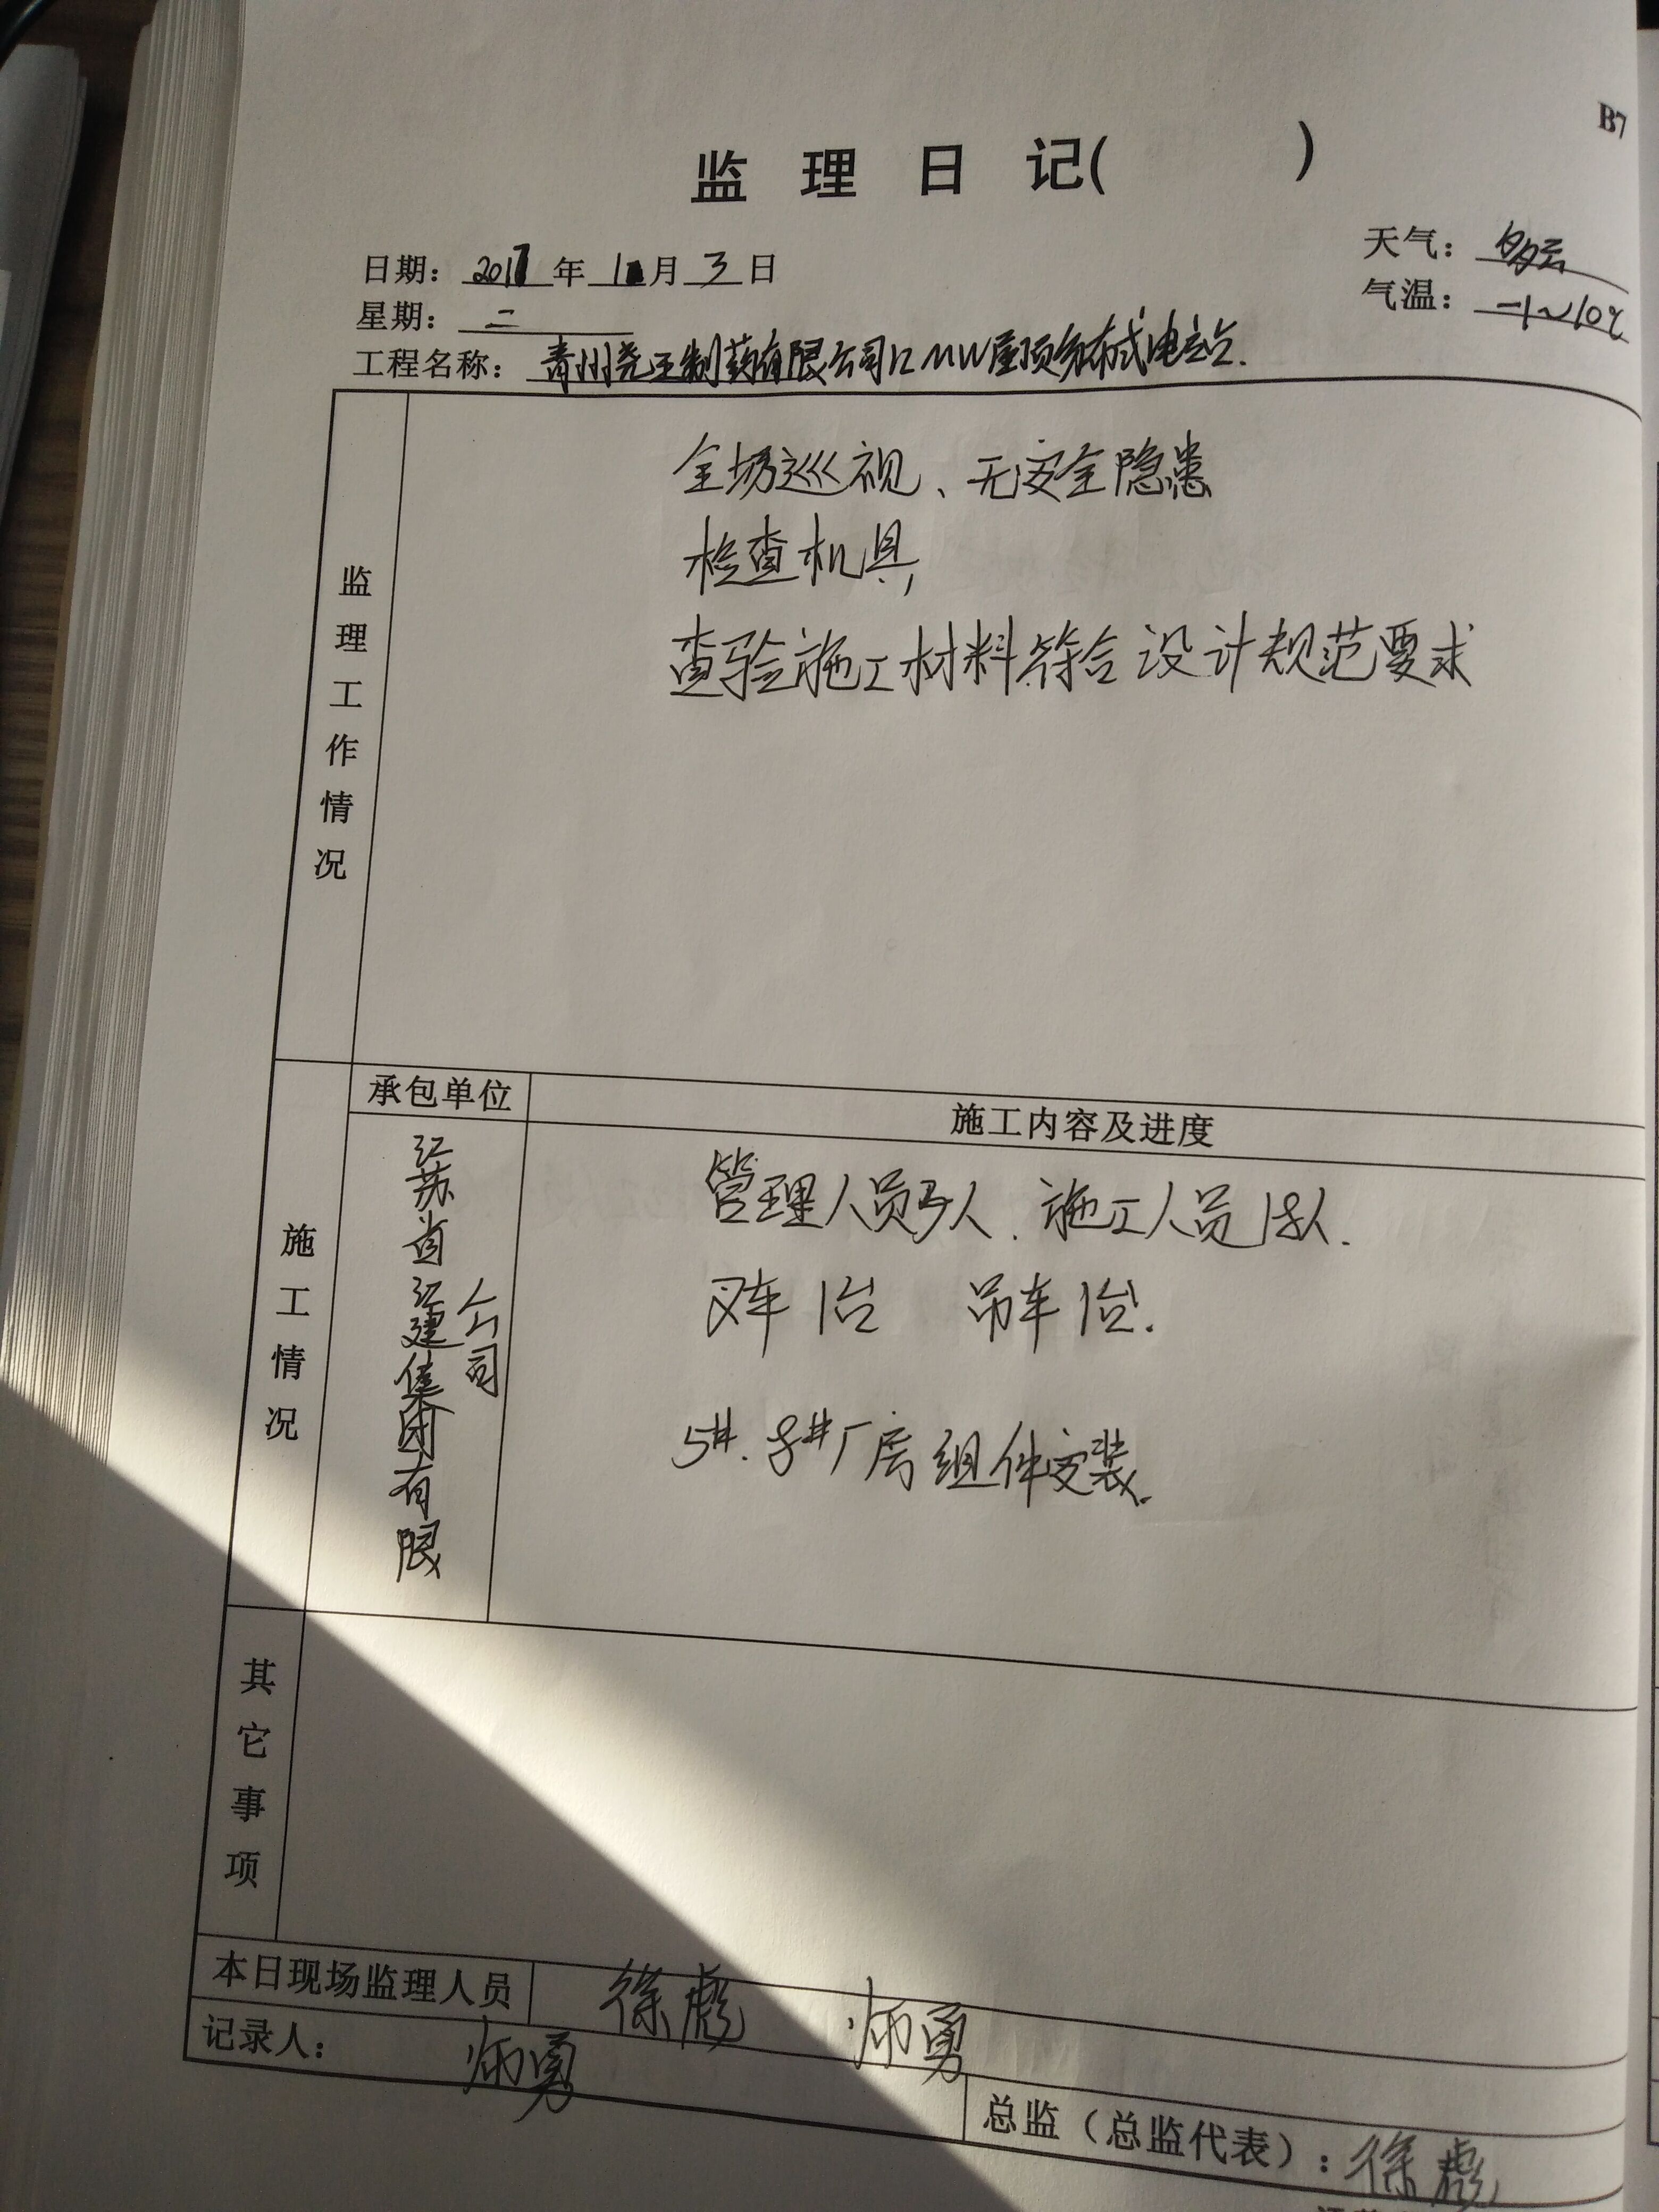 B7
监 理 日 记( )
日期: 2017 年 1 月 3 日
天气: 多云
星期: 二
气温: -1~10℃
工程名称: 青州尧王制药有限公司12MW屋顶分布式电站.
监理工作情况
全场巡视、无安全隐患
检查机具,
查验施工材料符合设计规范要求
施工情况
承包单位
施工内容及进度
江苏省江建集团有限公司
管理人员 人. 施工人员 人.
叉车1台 吊车1台.
5#. 8#厂房组件安装.
其它事项
本日现场监理人员 徐彪 勇
记录人: 勇
总监(总监代表): 徐彪